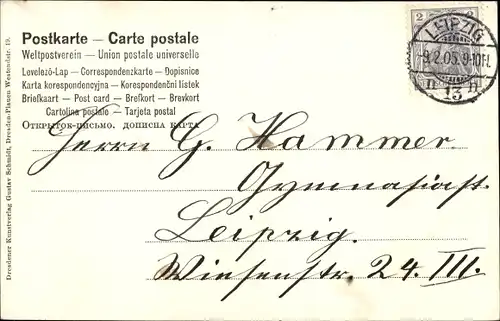 Postkarte — Carte postale
Weltpostverein — Union postale universelle
Levelező-Lap — Correspondenzkarte — Dopisnice
Karta korespondencyjna — Korespondenční lístek
Briefkaart — Post card — Brefkort — Brevkort
Cartolina postale — Tarjeta postal
Открытое-письмо, дописна карта
2 2
LEIPZIG
9.2.05. 9-10V.
13
Herrn G. Hammer
Gymnasiast.
Leipzig.
Wiesenstr. 24. III.
Dresdener Kunstverlag Gustav Schmidt, Dresden-Plauen Westendstr. 19.